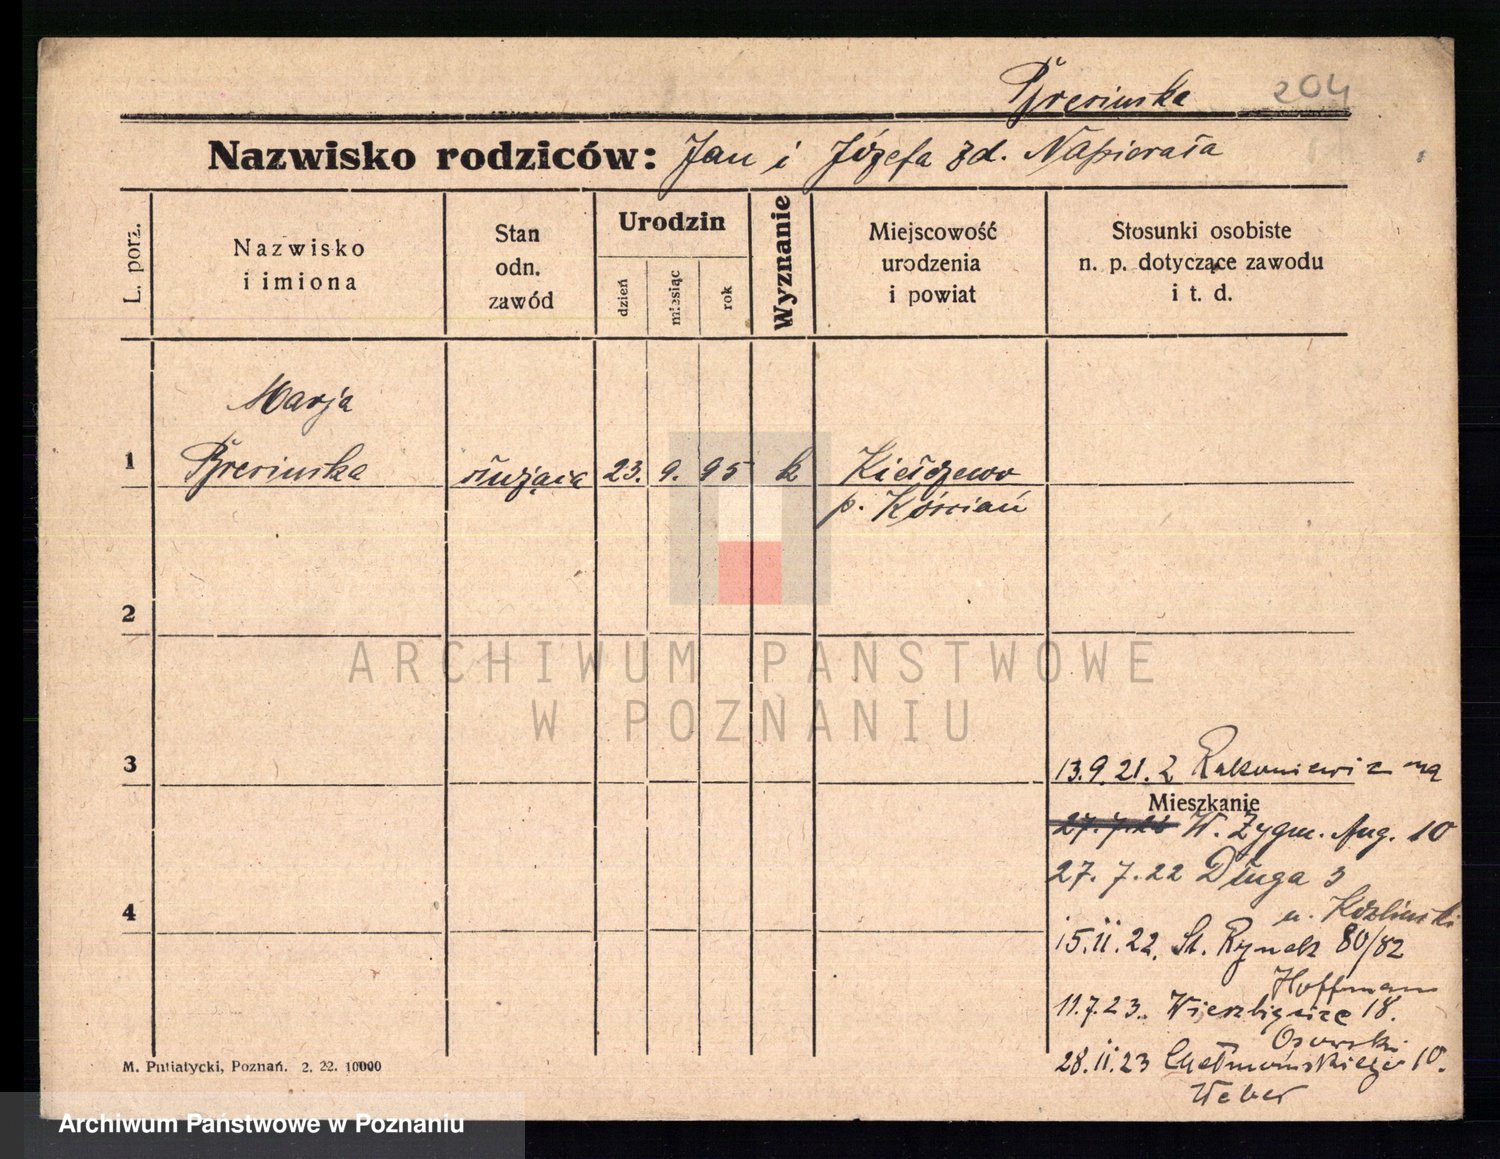 Bresinska 204
Nazwisko rodziców: Jan i Józefa zd. Napierała
L. porz.
Nazwisko
i imiona
Stan
odn.
zawód
Urodzin
dzień
miesiąc
rok
Wyznanie
Miejscowość
urodzenia
i powiat
Stosunki osobiste
n. p. dotyczące zawodu
i t. d.
Marja
1 Bresinska służąca 23. 9. 95 k Kiełczewo
p. Kościań
2
ARCHIWUM PAŃSTWOWE
W POZNANIU
3
13.9.21. z Rakoniewic na
Mieszkanie
27.7.22 W. Zygm. Aug. 10
27.7.22 Długa 3
4
u. Kozliński
15.11.22. St. Rynek 80/82
Hoffmann
11.7.23. Wierzbięcice 18.
Osowski
28.11.23 Chełmońskiego 10.
Weber
M. Putiatycki, Poznań. 2. 22. 10000
Archiwum Państwowe w Poznaniu